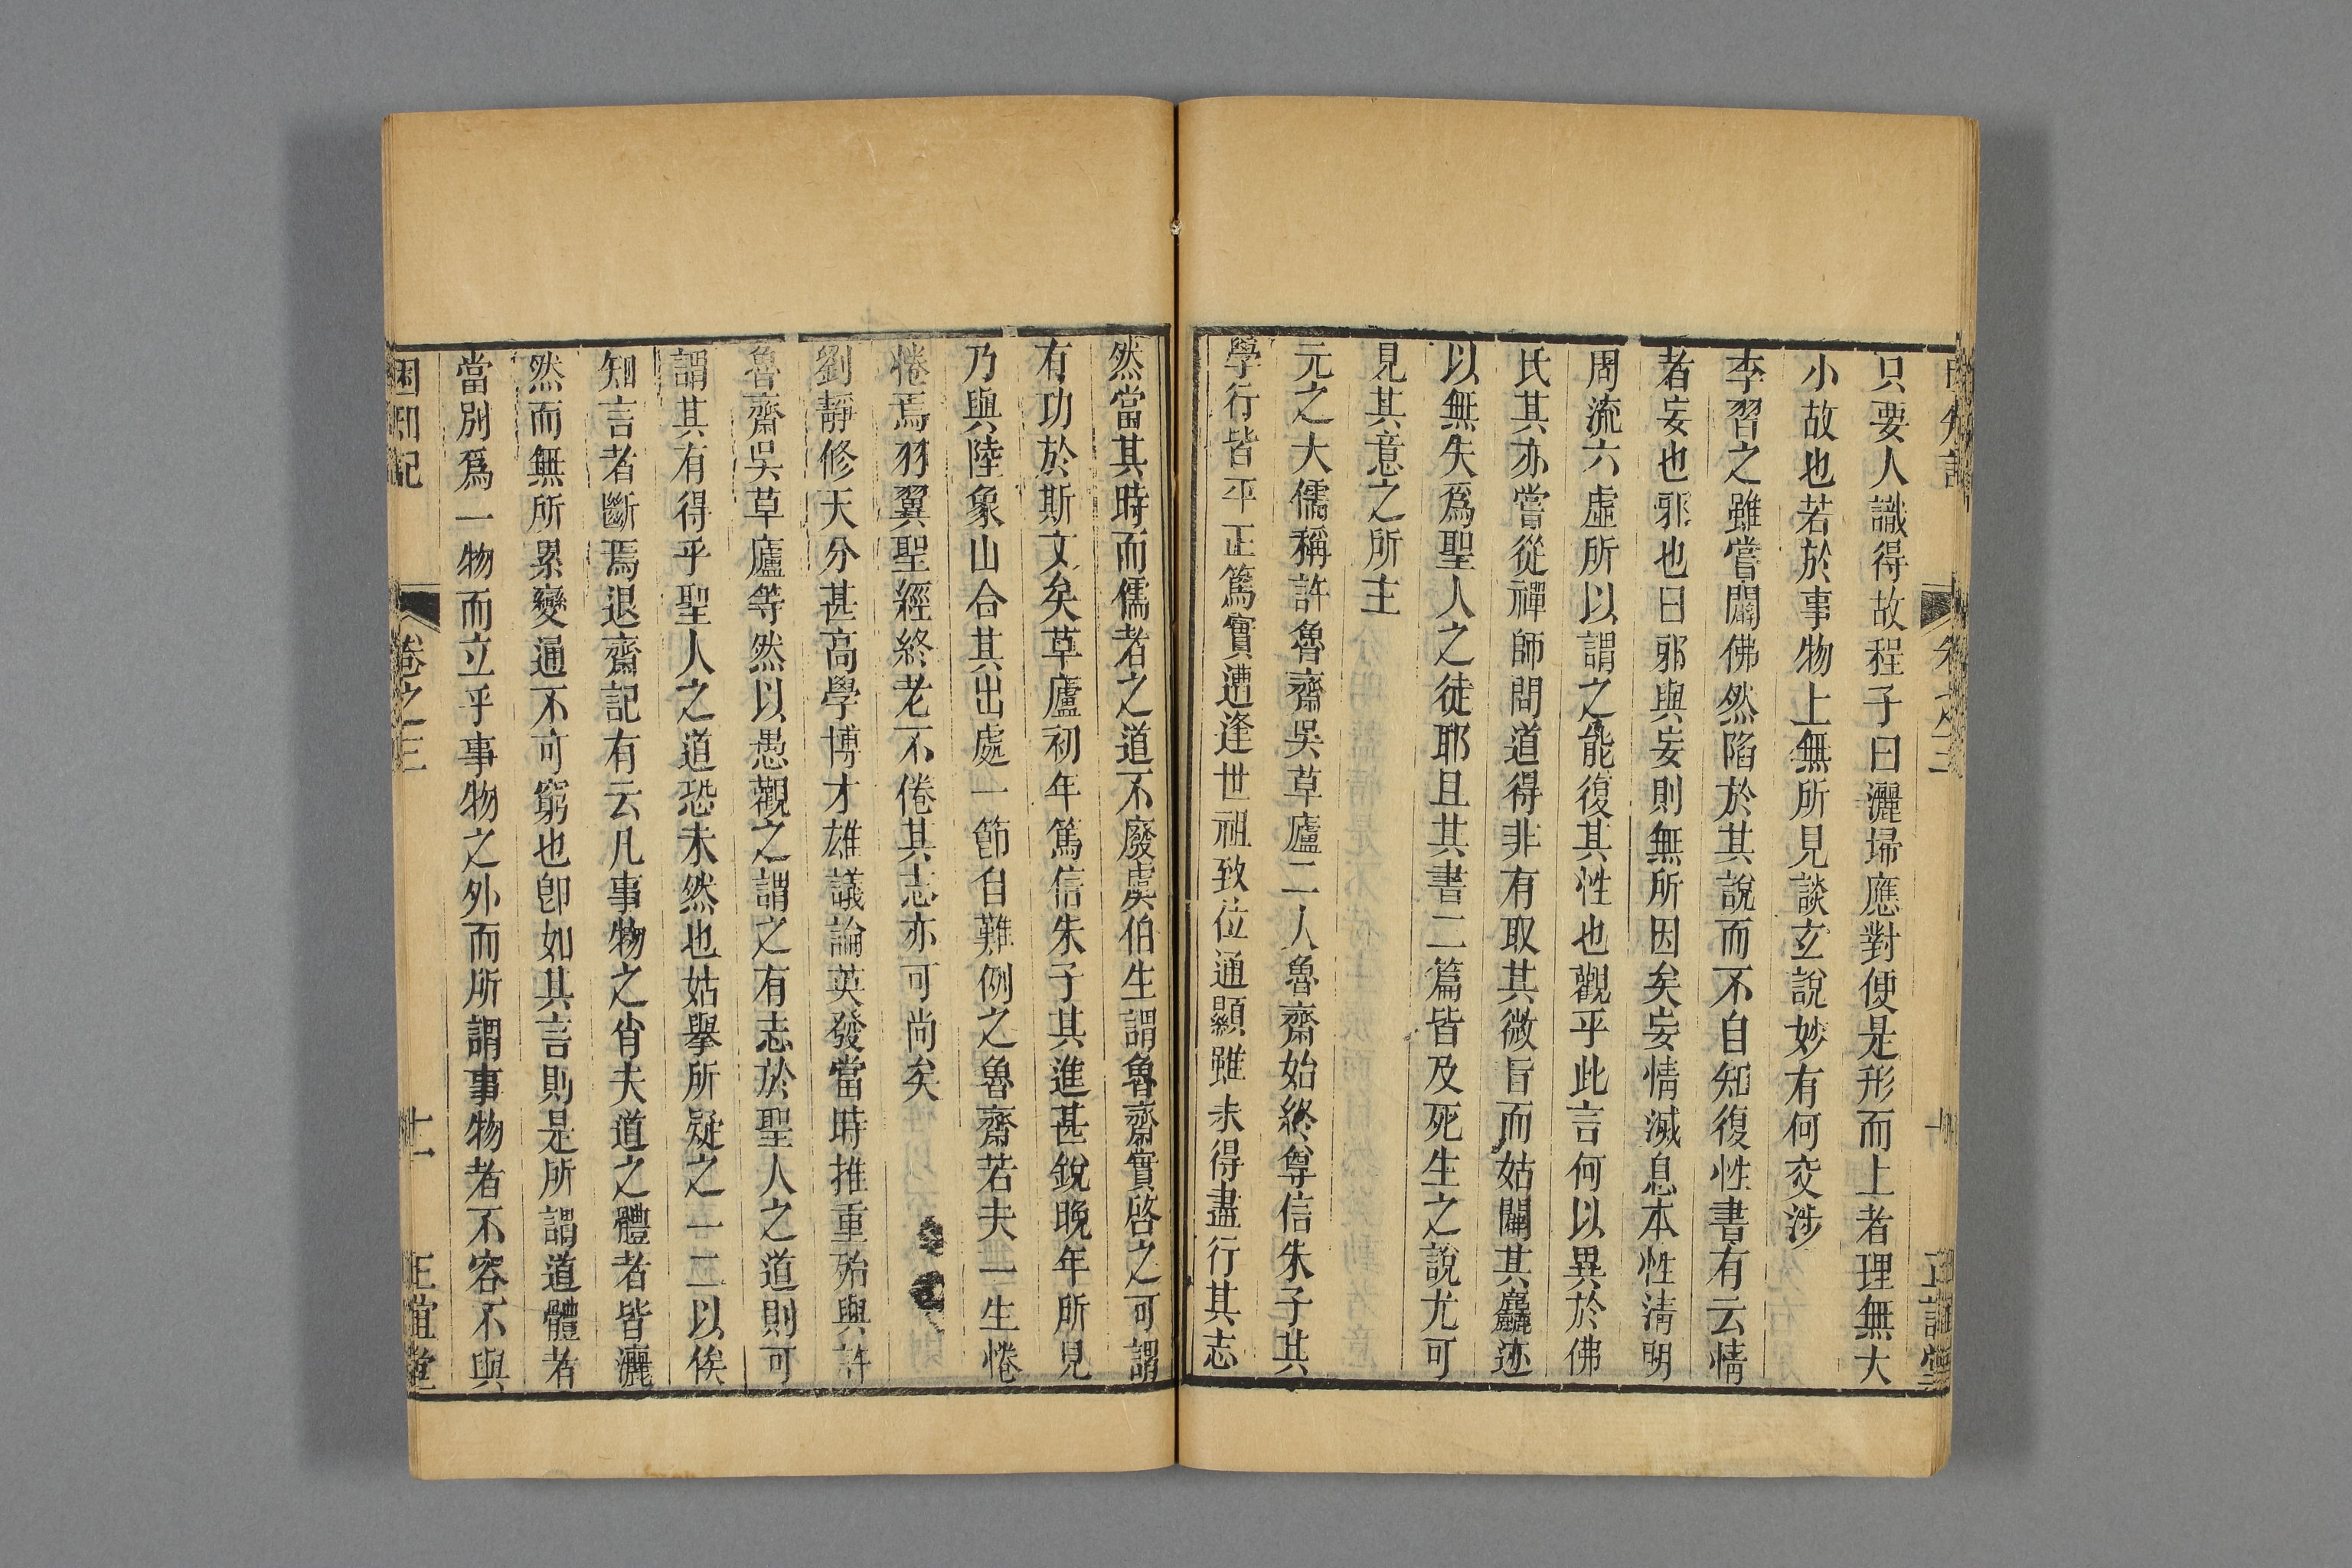 只要人識得故程子曰灑埽應對便是形而上者理無大
小故也若於事物上無所見談玄說妙有何交涉
李習之雖嘗闢佛然陷於其說而不自知復性書有云情
者妄也邪也曰邪與妄則無所因矣妄情滅息本性淸明
周流六虛所以謂之能復其性也觀乎此言何以異於佛
氏其亦嘗從禪師問道得非有取其微旨而姑闢其麤迹
以無失爲聖人之徒耶且其書二篇皆及死生之說尤可
見其意之所主
元之大儒稱許魯齋吳草廬二人魯齋始終尊信朱子其
學行皆平正篤實遭逢世祖致位通顯雖未得盡行其志
然當其時而儒者之道不廢虞伯生謂魯齋實啓之可謂
有功於斯文矣草廬初年篤信朱子其進甚銳晚年所見
乃與陸象山合其出處一節自難例之魯齋若夫一生惓
惓焉羽翼聖經終老不倦其志亦可尚矣
劉靜修天分甚高學博才雄議論英發當時推重殆與許
魯齋吳草廬等然以愚觀之謂之有志於聖人之道則可
謂其有得乎聖人之道恐未然也姑舉所疑之一二以俟
知言者斷焉退齋記有云凡事物之肖夫道之體者皆灑
然而無所累變通不可窮也卽如其言則是所謂道體者
當別爲一物而立乎事物之外而所謂事物者不容不與
困知記 卷之三 十一 正誼堂